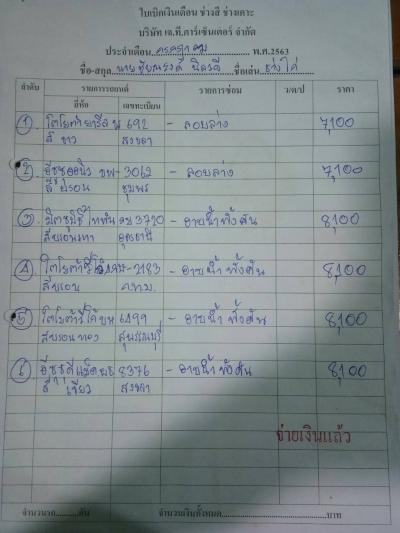 ใบเบิกเงินเดือน ช่างสี ช่างเคาะ
บริษัท เจ.ที.คาร์เซ็นเตอร์ จำกัด
ประจำเดือน กรกฎาคม พ.ศ.2563
ชื่อ-สกุล นาย ชัยณรงค์ ชื่อเล่น ช่างไก่
ลำดับ รายการรถยนต์ รายการซ่อม ว/ด/ป ราคา
ยี่ห้อ เลขทะเบียน
1 โตโยต้า ยารีส 692 - ลอบล่าง 7,100
สี ขาว สงขลา
2 อีซูซุ 3062 - ลอบล่าง 7,100
สีบรอน ชุมพร
3 มิตซูบิชิ ไททัน 3720 - อาบน้ำทั้งคัน 8,100
อุดรธานี
4 โตโยต้า -2183 - อาบน้ำทั้งคัน 8,100
สีบรอน ก.ท.ม.
5 โตโยต้า 6499 - อาบน้ำทั้งคัน 8,100
สีบรอนทอง สุพรรณบุรี
6 อีซูซุ ดีแม็ค 8376 - อาบน้ำทั้งคัน 8,100
สี เขียว สงขลา
จ่ายเงินแล้ว
จำนวนรถ..........คัน จำนวนเงินทั้งหมด..........บาท